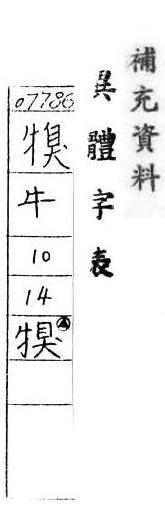 補充資料
異體字表
07786
牛
10
14